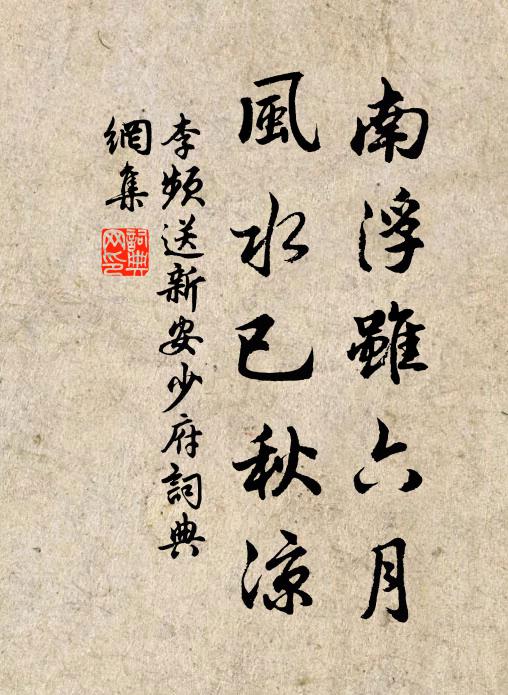 南浮雖六月
風水已秋涼
李頻送新安少府詞典
網集
詞典網印